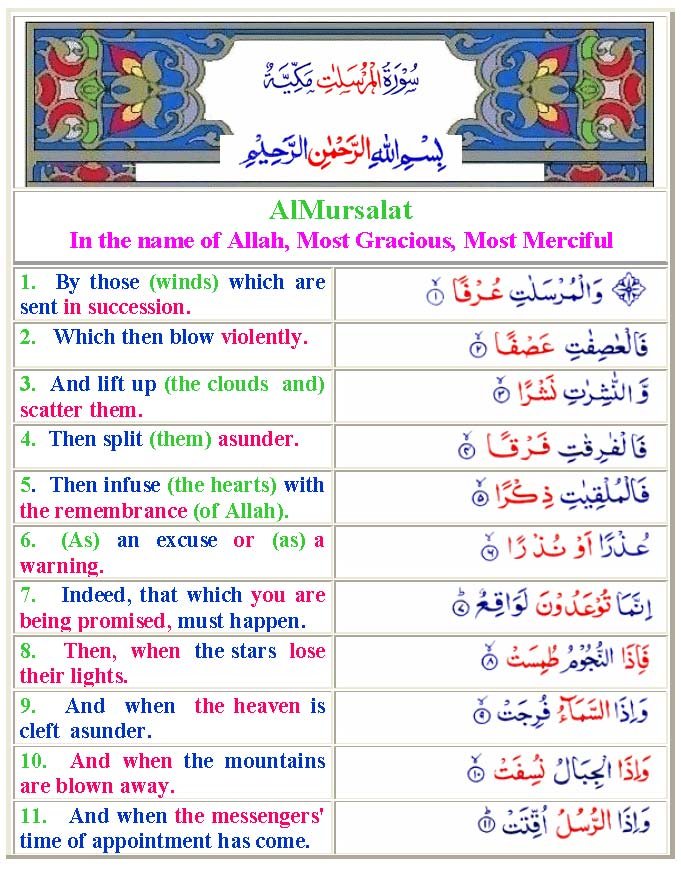 سُوْرَةُ الْمُرْسَلٰتِ مَكِّيَّةٌ
بِسْمِ اللهِ الرَّحْمٰنِ الرَّحِيْمِ
AlMursalat
In the name of Allah, Most Gracious, Most Merciful
1. By those (winds) which are
sent in succession.
وَالْمُرْسَلٰتِ عُرْفًا ۱
2. Which then blow violently.
فَالْعٰصِفٰتِ عَصْفًا ۲
3. And lift up (the clouds and)
scatter them.
وَّ النّٰشِرٰتِ نَشْرًا ۳
4. Then split (them) asunder.
فَالْفٰرِقٰتِ فَرْقًا ۴
5. Then infuse (the hearts) with
the remembrance (of Allah).
فَالْمُلْقِيٰتِ ذِكْرًا ۵
6. (As) an excuse or (as) a
warning.
عُذْرًا اَوْ نُذْرًا ۶
7. Indeed, that which you are
being promised, must happen.
اِنَّمَا تُوْعَدُوْنَ لَوَاقِعٌ ۷
8. Then, when the stars lose
their lights.
فَاِذَا النُّجُوْمُ طُمِسَتْ ۸
9. And when the heaven is
cleft asunder.
وَاِذَا السَّمَآءُ فُرِجَتْ ۹
10. And when the mountains
are blown away.
وَاِذَا الْجِبَالُ نُسِفَتْ ۱۰
11. And when the messengers'
time of appointment has come.
وَاِذَا الرُّسُلُ اُقِّتَتْ ۱۱